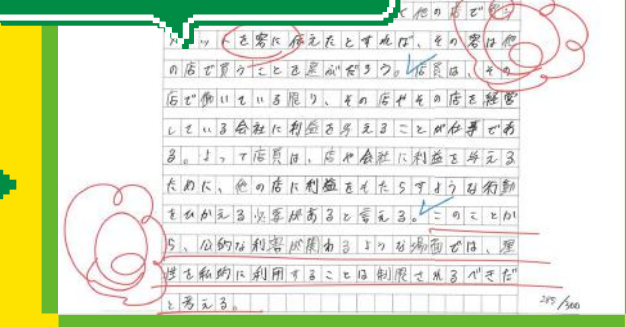 て他の店で買う
リットを客に伝えたとすれば、その客は他
の店で買うことを選ぶだろう。店員は、その
店で働いている限り、その店やその店を経営
している会社に利益を与えることが仕事であ
る。よって店員は、店や会社に利益を与える
ために、他の店に利益をもたらすような行動
をひかえる必要があると言える。このことか
ら、公的な利害が関わるような場面では、理
性を私的に利用することは制限されるべきだ
と考える。
285/300